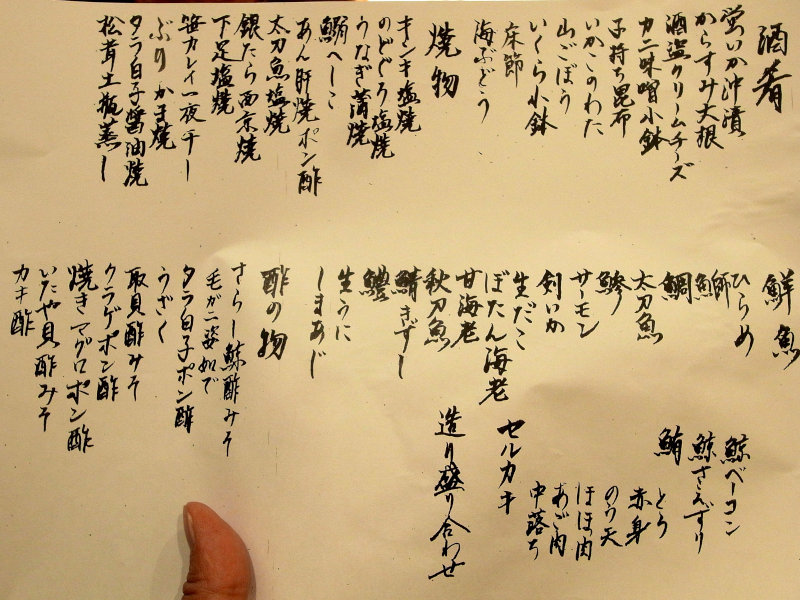 酒肴
蛍いか沖漬
からすみ大根
酒盗クリームチーズ
カニ味噌小鉢
子持ち昆布
いかこのわた
山ごぼう
いくら小鉢
床節
海ぶどう
焼物
キンキ塩焼
のどぐろ塩焼
うなぎ蒲焼
鰯へしこ
あん肝焼ポン酢
太刀魚塩焼
銀たら西京焼
下足塩焼
笹カレイ一夜干し
ぶりかま焼
タラ白子醤油焼
松茸土瓶蒸し
鮮魚
ひらめ
鰤
鯛
太刀魚
鯵
サーモン
剣いか
生だこ
ぼたん海老
甘海老
秋刀魚
鯖きずし
鱧
生うに
しまあじ
鯨ベーコン
鯨さえずり
鮪
とろ
赤身
のう天
ほほ肉
あご肉
中落ち
セルカキ
造り盛り合わせ
酢の物
さらし鯨酢みそ
毛がに姿ゆで
タラ白子ポン酢
うざく
取貝酢みそ
クラゲポン酢
焼きマグロポン酢
いたや貝酢みそ
カキ酢